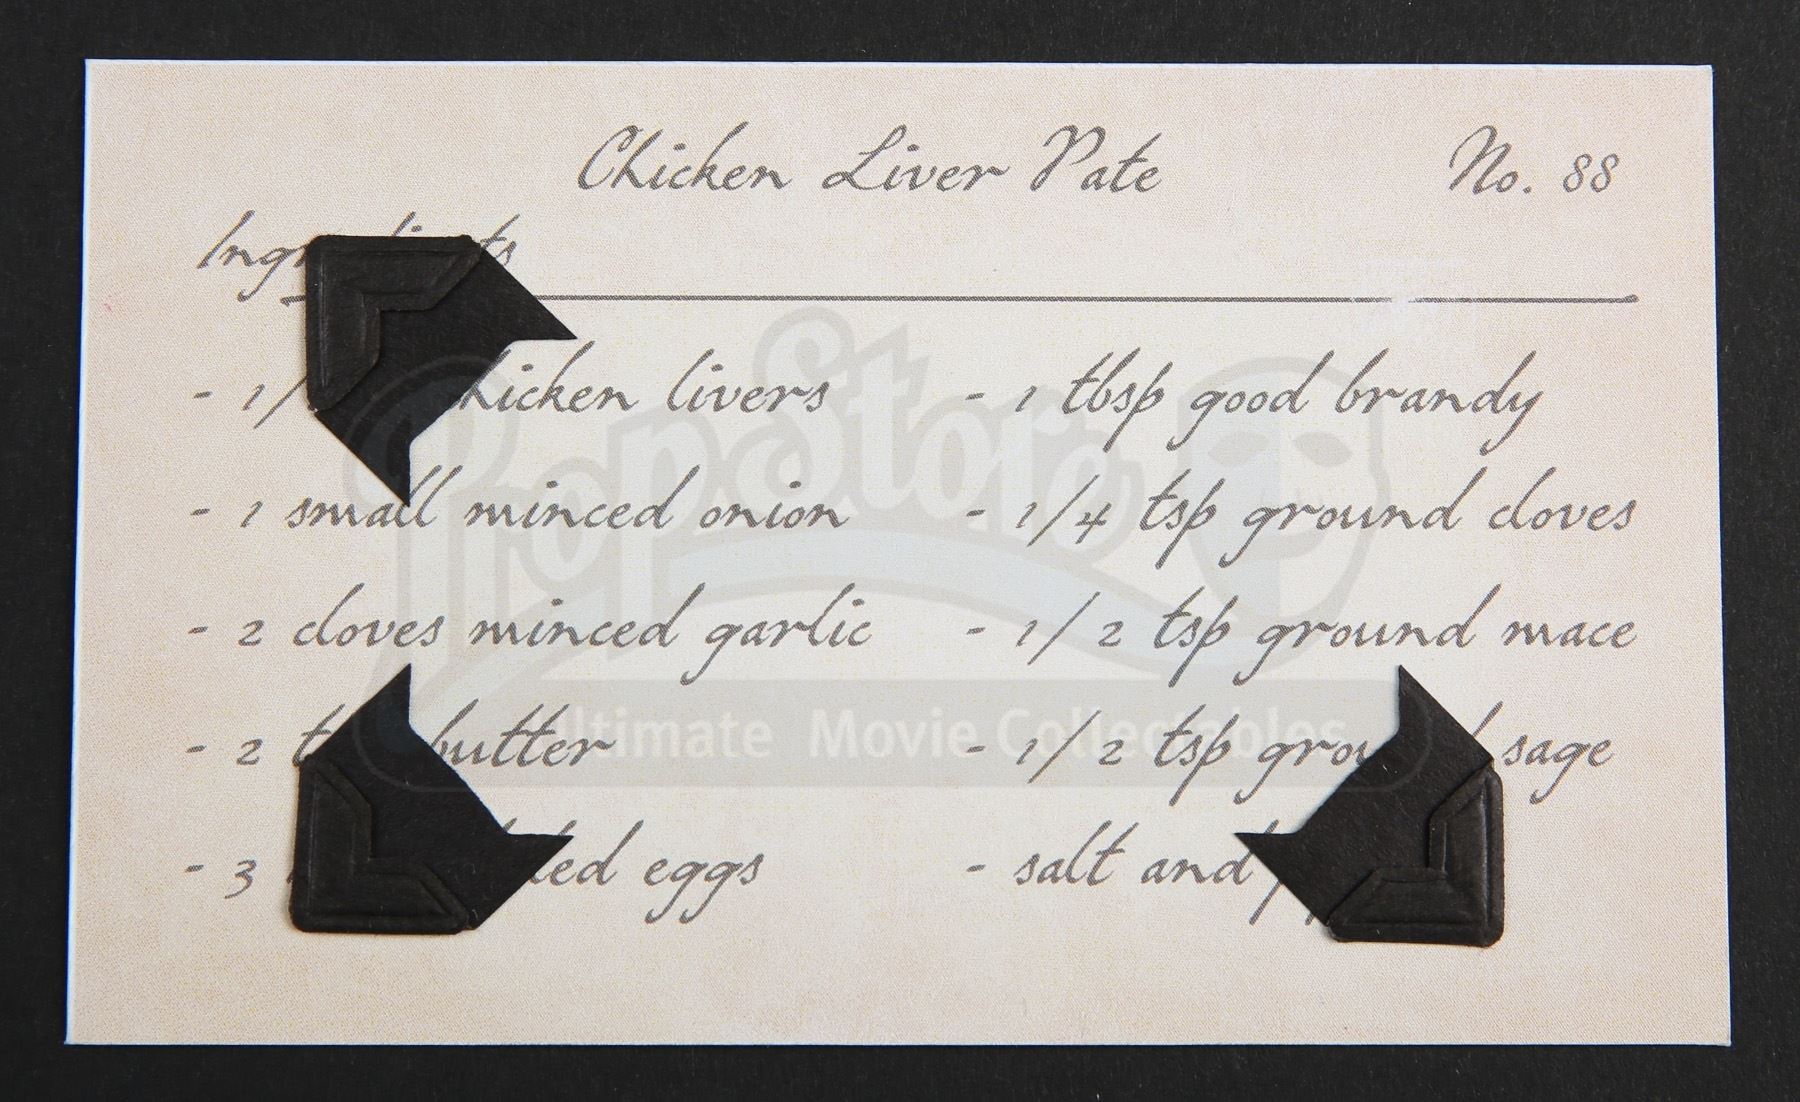 Chicken Liver Pate No. 88
- 1/ chicken livers
- 1 small minced onion
- 2 cloves minced garlic
- 2 butter
- 3 eggs
- 1 tbsp good brandy
- 1/4 tsp ground cloves
- 1/2 tsp ground mace
- 1/2 tsp ground sage
- salt and
PropStore
Ultimate Movie Collectables